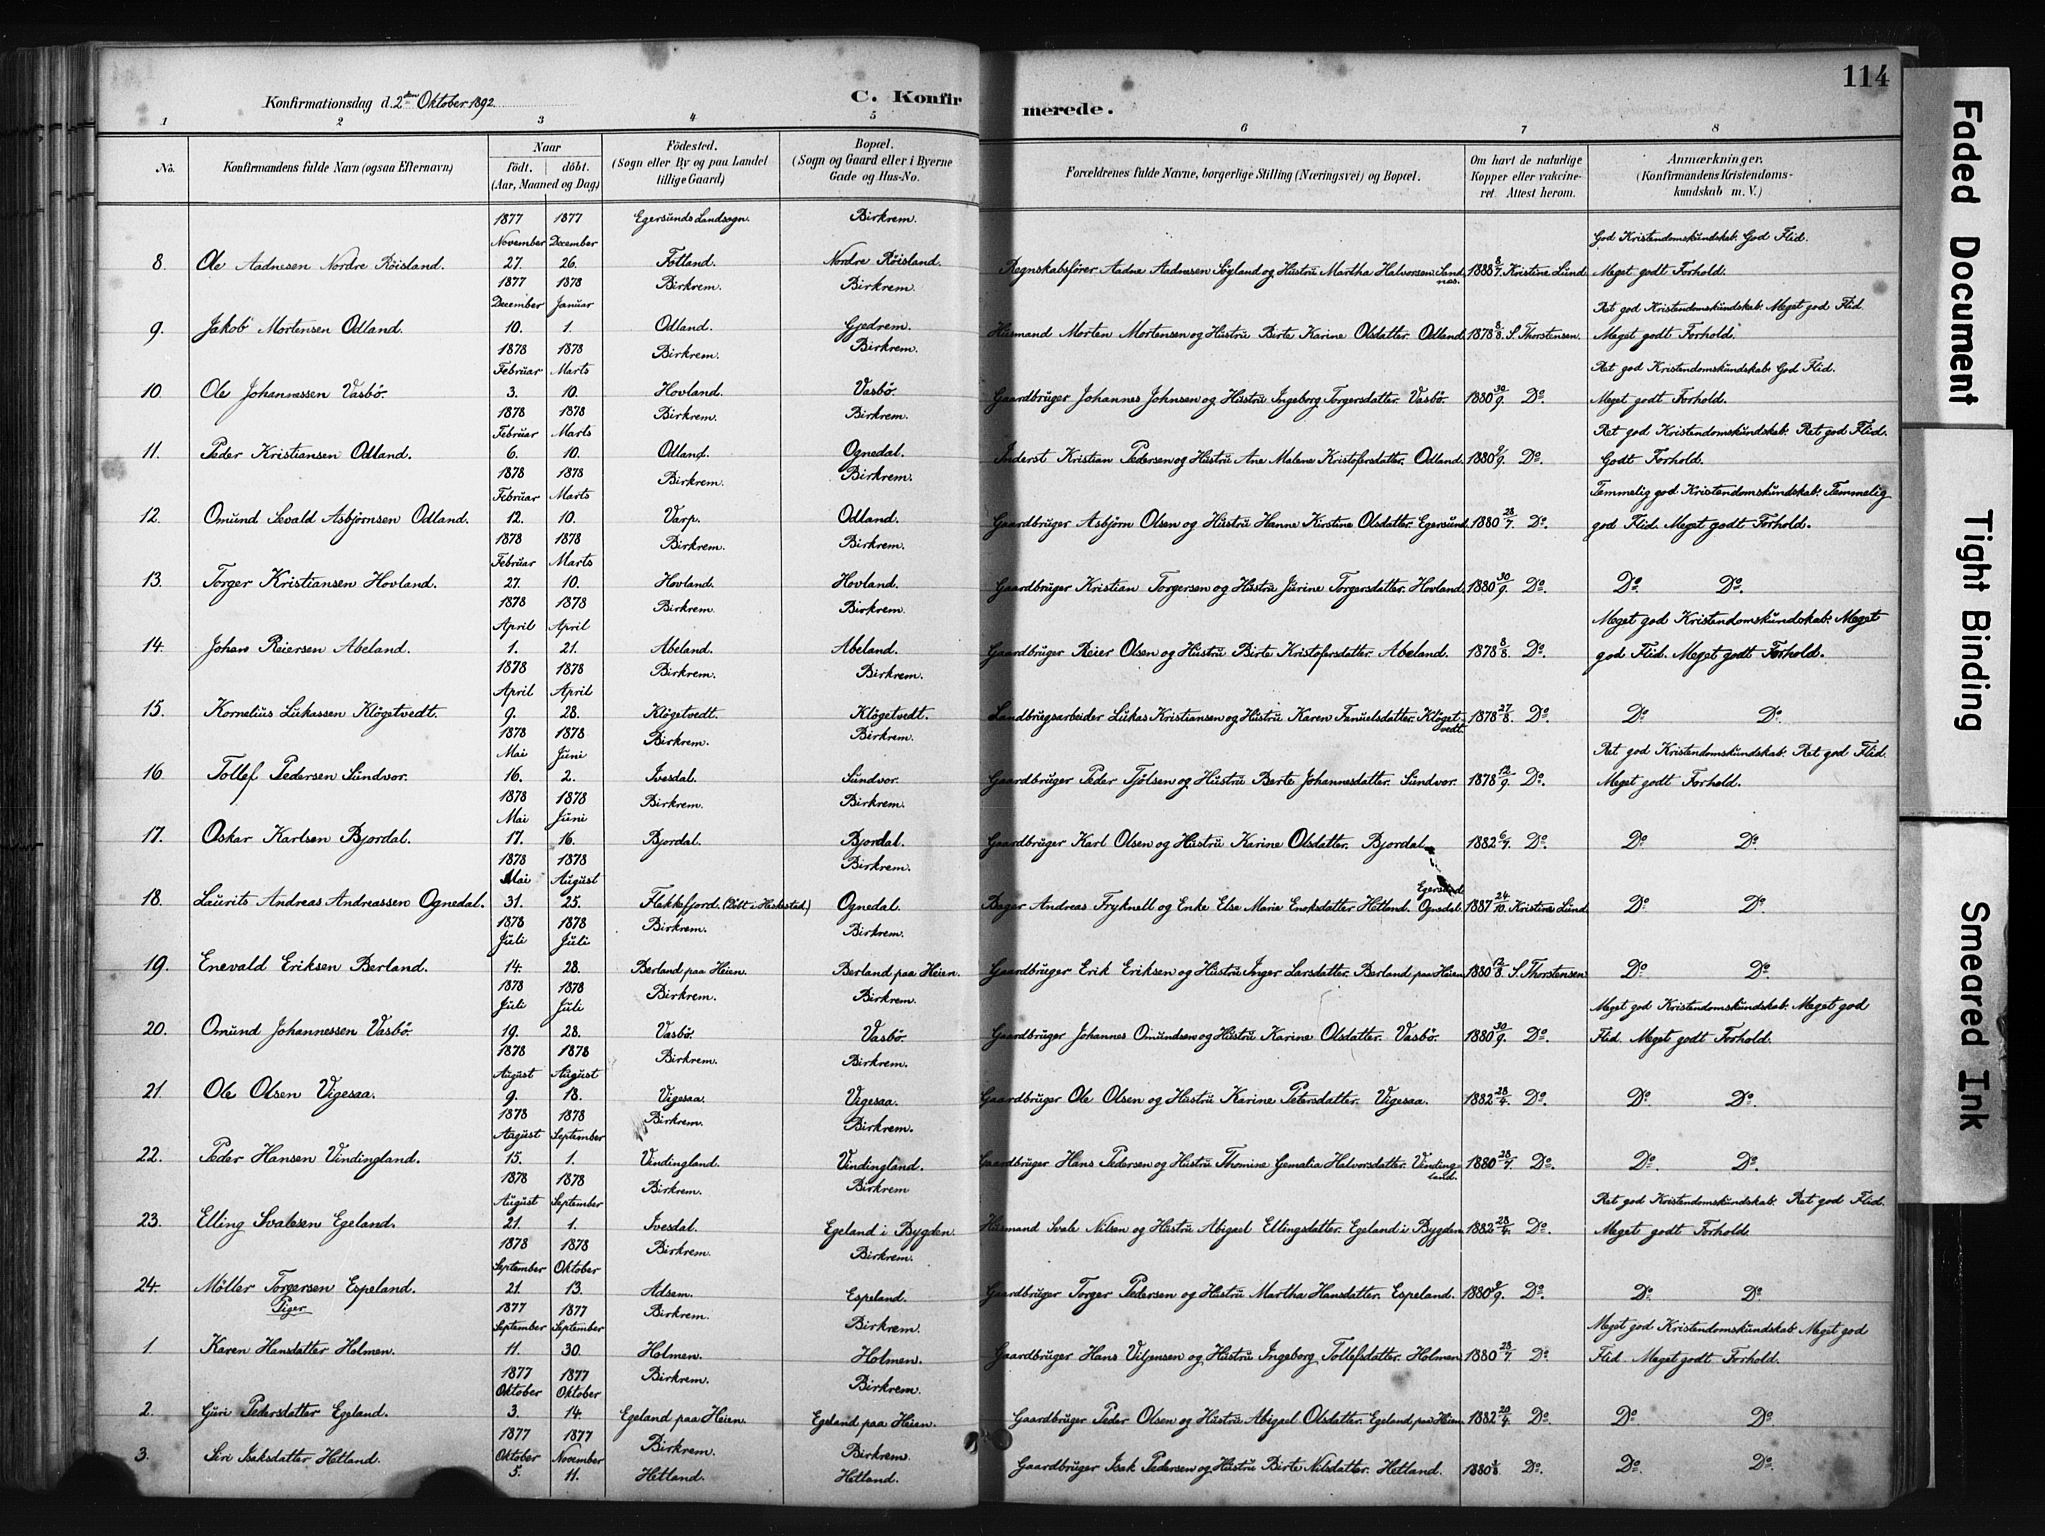 114
Konfirmationsdag d. 2den Oktober 1892.
C. Konfirmerede.
1 2 3 4 5 6 7 8
No. Konfirmandens fulde Navn (ogsaa Efternavn) Naar födt. döbt. (Aar, Maaned og Dag) Födested. (Sogn eller By og paa Landet tillige Gaard) Bopæl. (Sogn og Gaard eller i Byerne Gade og Hus-No. Forældrenes fulde Navne, borgerlige Stilling (Næringsvei) og Bopæl. Om havt de naturlige Kopper eller vakcineret. Attest herom. Anmærkninger. (Konfirmandens Kristendomskundskab m. V.)
1877 1877 Egersunds Landsogn. Birkrem.
November December God Kristendomskundskab. God Flid.
8. Ole Aadnesen Nordre Röisland. 27. 26. Fotland. Nordre Röisland. Regnskabsförer Aadne Aadnesen Söyland og Hustru Martha Halvorsen. Sandnæs. 1888 8/7. Kristine Lund. Meget godt Forhold.
1877 1878 Birkrem. Birkrem.
December Januar Ret god Kristendomskundskab. Meget god Flid
9. Jakob Mortensen Odland. 10. 1. Odland. Gjedrem. Husmand Morten Mortensen og Hustru Birte Karine Olsdatter. Odland. 1878 8/8. S. Thorstensen. Meget godt Forhold.
1878 1878 Birkrem. Birkrem.
Februar Marts Ret god Kristendomskundskab. God Flid.
10. Ole Johannessen Vasbö. 3. 10. Hovland. Vasbö. Gaardbruger Johannes Johnsen og Hustru Ingeborg Torgersdatter. Vasbö. 1880 30/9. Do. Meget godt Forhold.
1878 1878 Birkrem. Birkrem.
Februar Marts Ret god Kristendomskundskab. Ret god Flid.
11. Peder Kristiansen Odland. 6. 10. Odland. Ognedal. Inderst Kristian Pedersen og Hustru Ane Malene Kristofersdatter. Odland. 1880 9. Do. Godt Forhold.
1878 1878 Birkrem. Birkrem.
Februar Marts Temmelig god Kristendomskundskab. Temmelig
12. Omund Sevald Asbjörnsen Odland. 12. 10. Varp. Odland. Gaardbruger Asbjörn Olsen og Hustru Hanne Kirstine Olsdatter. Egersund. 1880 28/7. Do. god Flid. Meget godt Forhold.
1878 1878 Birkrem. Birkrem.
Februar Marts
13. Torger Kristiansen Hovland. 27. 10. Hovland. Hovland. Gaardbruger Kristian Torgersen og Hustru Jurine Torgersdatter. Hovland. 1880 30/9. Do. Do. Do.
1878 1878 Birkrem. Birkrem.
April April Meget god Kristendomskundskab. Meget
14. Johan Reiersen Abeland. 1. 21. Abeland. Abeland. Gaardbruger Reier Olsen og Hustru Birte Kristofersdatter. Abeland. 1878 8/8. Do. god Flid. Meget godt Forhold.
1878 1878 Birkrem. Birkrem.
April April
15. Kornelius Lukassen Klögetvedt. 9. 28. Klögetvedt. Klögetvedt. Landbrugsarbeider Lukas Kristiansen og Hustru Karen Fanuelsdatter. Klögetvedt. 1878 27/8. Do. Do. Do.
1878 1878 Birkrem. Birkrem.
Mai Juni Ret god Kristendomskundskab. Ret god Flid.
16 Tollef Pedersen Sundvor. 16. 2. Ivesdal. Sundvor. Gaardbruger Peder Tjölsen og Hustru Berte Johannesdatter. Sundvor. 1878 12/9. Do. Meget godt Forhold.
1878 1878 Birkrem. Birkrem.
Mai Juni
17. Oskar Karlsen Bjordal. 17. 16. Bjordal. Bjordal. Gaardbruger Karl Olsen og Hustru Karine Olsdatter. Bjordal. 1882 6/7. Do. Do. Do.
1878 1878 Birkrem.
Mai August
18. Laurits Andreas Andreassen Ognedal. 31. 25. Flekkefjord. (Döbt i Heskestad.) Ognedal. Bager Andreas Fryknell og Enke Else Marie Enoksdatter Hetland. Egersund Ognedal. 1887 24/10. Kristine Lund. Do. Do.
1878 1878 Birkrem. Birkrem.
Juli Juli
19. Enevald Eriksen Berland. 14. 28. Berland paa Heien. Berland paa Heien. Gaardbruger Erik Eriksen og Hustru Inger Larsdatter. Berland paa Heien 1880 12/8. S. Thorstensen Do. Do.
1878 1878 Birkrem. Birkrem.
Juli Juli Meget god Kristendomskundskab. Meget god
20. Omund Johannessen Vasbö. 19. 28. Vasbö. Vasbö. Gaardbruger Johannes Omundsen og Hustru Karine Olsdatter. Vasbö. 1880 30/9. Do. Flid. Meget godt Forhold.
1878 1878 Birkrem. Birkrem.
August August
21. Ole Olsen Vigesaa. 9. 18. Vigesaa. Vigesaa. Gaardbruger Ole Olsen og Hustru Karine Petersdatter. Vigesaa. 1882 28/4. Do. Do. Do.
1878 1878 Birkrem. Birkrem.
August September
22. Peder Hansen Vindingland. 15. 1. Vindingland. Vindingland. Gaardbruger Hans Pedersen og Hustru Thomine Gemalia Halvorsdatter. Vindingland. 1880 28/7. Do. Do. Do.
1878 1878 Birkrem. Birkrem
August September Ret god Kristendomskundskab. Ret god Flid.
23. Elling Svalesen Egeland. 21. 1. Ivesdal. Egeland i Bygden. Husmand Svale Nilsen og Hustru Abigael Ellingsdatter. Egeland i Bygden. 1882 28/4. Do. Meget godt Forhold.
1878 1878 Birkrem. Birkrem.
September Oktober
24. Möller Torgersen Espeland. 21. 13. Adsem. Espeland. Gaardbruger Torger Pedersen og Hustru Martha Hansdatter. Espeland. 1880 9. Do. Do. Do.
Piger 1877 1877 Birkrem. Birkrem.
September September Meget god Kristendomskundskab. Meget god
1. Karen Hansdatter Holmen. 11. 30. Holmen. Holmen. Gaardbruger Hans Viljensen og Hustru Ingeborg Tollefsdatter. Holmen. 1880 28/7. Do. Flid. Meget godt Forhold.
1877 1877 Birkrem. Birkrem.
Oktober Oktober
2. Guri Pedersdatter Egeland. 3. 14. Egeland paa Heien. Egeland paa Heien. Gaardbruger Peder Olsen og Hustru Abigael Olsdatter. Egeland paa Heien. 1882 20/4. Do. Do. Do.
1877 1877 Birkrem. Birkrem.
Oktober November
3. Siri Isaksdatter Hetland. 5. 11. Hetland. Hetland. Gaardbruger Isak Pedersen og Hustru Birte Nilsdatter. Hetland. 1880 8. Do. Do. Do.
Faded Document
Tight Binding
Smeared Ink